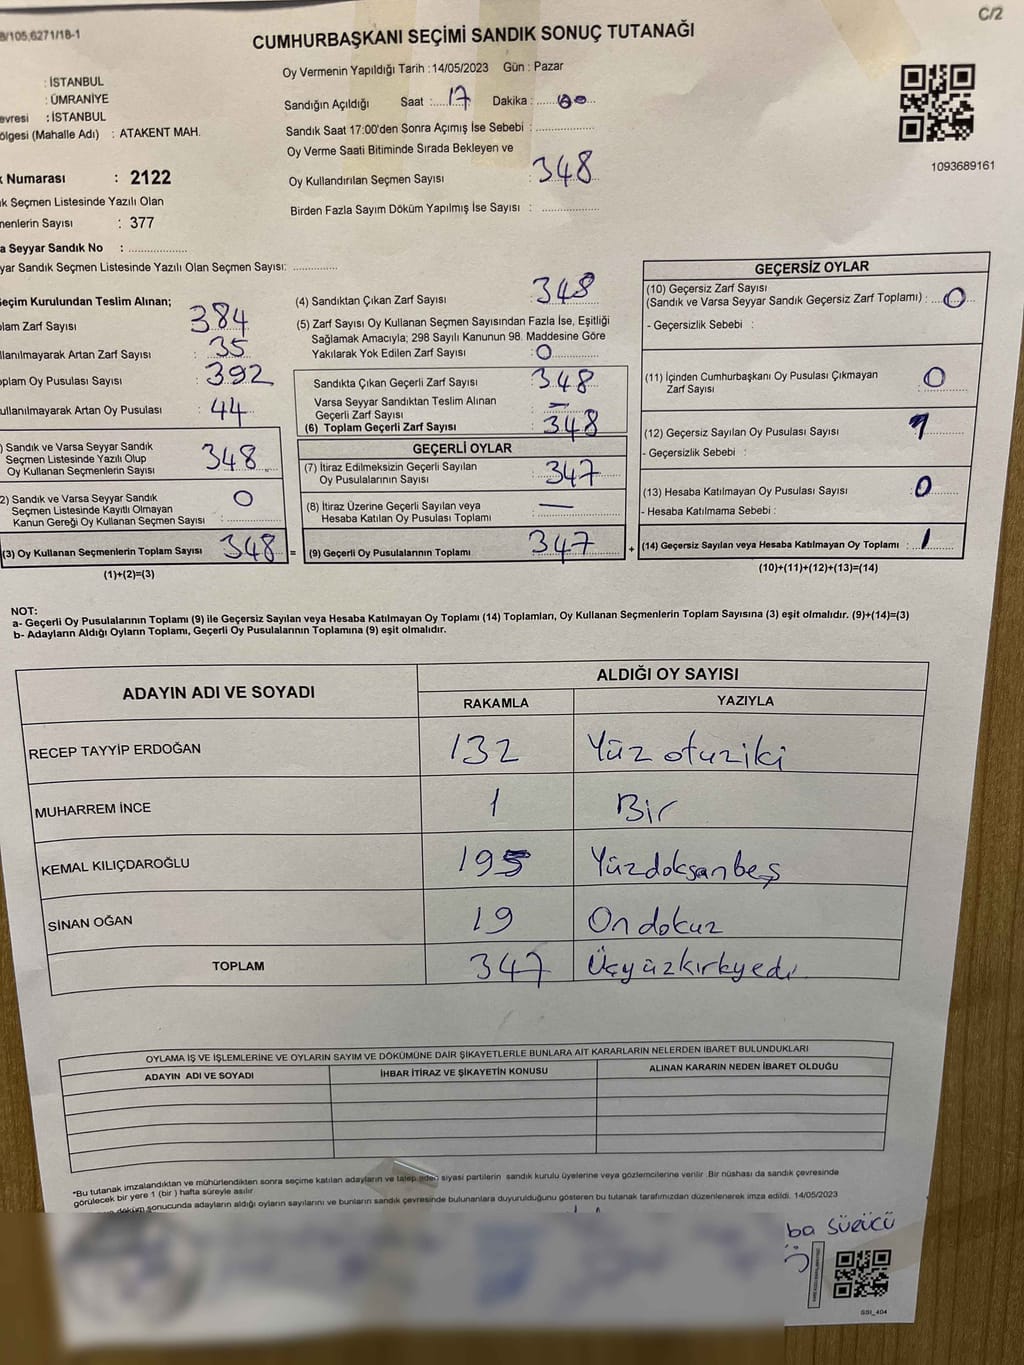 8/105,6271/18-1
C/2
CUMHURBAŞKANI SEÇİMİ SANDIK SONUÇ TUTANAĞI
: İSTANBUL
: ÜMRANİYE
evresi : İSTANBUL
ölgesi (Mahalle Adı) : ATAKENT MAH.
k Numarası : 2122
k Seçmen Listesinde Yazılı Olan
menlerin Sayısı : 377
a Seyyar Sandık No : ...............
yar Sandık Seçmen Listesinde Yazılı Olan Seçmen Sayısı: .............
Oy Vermenin Yapıldığı Tarih : 14/05/2023 Gün : Pazar
Sandığın Açıldığı Saat : 17 Dakika : 00
Sandık Saat 17:00'den Sonra Açımış İse Sebebi : ...............
Oy Verme Saati Bitiminde Sırada Bekleyen ve
Oy Kullandırılan Seçmen Sayısı : 348
Birden Fazla Sayım Döküm Yapılmış İse Sayısı : ...............
1093689161
eçim Kurulundan Teslim Alınan;
lam Zarf Sayısı : 384
llanılmayarak Artan Zarf Sayısı : 35
oplam Oy Pusulası Sayısı : 392
ullanılmayarak Artan Oy Pusulası : 44
) Sandık ve Varsa Seyyar Sandık
Seçmen Listesinde Yazılı Olup
Oy Kullanan Seçmenlerin Sayısı : 348
2) Sandık ve Varsa Seyyar Sandık
Seçmen Listesinde Kayıtlı Olmayan
Kanun Gereği Oy Kullanan Seçmen Sayısı : 0
(3) Oy Kullanan Seçmenlerin Toplam Sayısı 348 =
(1)+(2)=(3)
(4) Sandıktan Çıkan Zarf Sayısı : 348
(5) Zarf Sayısı Oy Kullanan Seçmen Sayısından Fazla İse, Eşitliği
Sağlamak Amacıyla; 298 Sayılı Kanunun 98. Maddesine Göre
Yakılarak Yok Edilen Zarf Sayısı : 0
Sandıkta Çıkan Geçerli Zarf Sayısı : 348
Varsa Seyyar Sandıktan Teslim Alınan
Geçerli Zarf Sayısı : —
(6) Toplam Geçerli Zarf Sayısı : 348
GEÇERLİ OYLAR
(7) İtiraz Edilmeksizin Geçerli Sayılan
Oy Pusulalarının Sayısı : 347
(8) İtiraz Üzerine Geçerli Sayılan veya
Hesaba Katılan Oy Pusulası Toplamı : —
(9) Geçerli Oy Pusulalarının Toplamı : 347 +
GEÇERSİZ OYLAR
(10) Geçersiz Zarf Sayısı
(Sandık ve Varsa Seyyar Sandık Geçersiz Zarf Toplamı) : 0
- Geçersizlik Sebebi :
(11) İçinden Cumhurbaşkanı Oy Pusulası Çıkmayan
Zarf Sayısı : 0
(12) Geçersiz Sayılan Oy Pusulası Sayısı : 1
- Geçersizlik Sebebi :
(13) Hesaba Katılmayan Oy Pusulası Sayısı : 0
- Hesaba Katılmama Sebebi :
(14) Geçersiz Sayılan veya Hesaba Katılmayan Oy Toplamı : 1
(10)+(11)+(12)+(13)=(14)
NOT:
a- Geçerli Oy Pusulalarının Toplamı (9) ile Geçersiz Sayılan veya Hesaba Katılmayan Oy Toplamı (14) Toplamları, Oy Kullanan Seçmenlerin Toplam Sayısına (3) eşit olmalıdır. (9)+(14)=(3)
b- Adayların Aldığı Oyların Toplamı, Geçerli Oy Pusulalarının Toplamına (9) eşit olmalıdır.
ADAYIN ADI VE SOYADI ALDIĞI OY SAYISI
RAKAMLA YAZIYLA
RECEP TAYYİP ERDOĞAN 132 Yüz otuziki
MUHARREM İNCE 1 Bir
KEMAL KILIÇDAROĞLU 195 Yüzdoksanbeş
SİNAN OĞAN 19 On dokuz
TOPLAM 347 Üçyüzkırkyedi
OYLAMA İŞ VE İŞLEMLERİNE VE OYLARIN SAYIM VE DÖKÜMÜNE DAİR ŞİKAYETLERLE BUNLARA AİT KARARLARIN NELERDEN İBARET BULUNDUKLARI
ADAYIN ADI VE SOYADI İHBAR İTİRAZ VE ŞİKAYETİN KONUSU ALINAN KARARIN NEDEN İBARET OLDUĞU
*Bu tutanak imzalandıktan ve mühürlendikten sonra seçime katılan adayların ve talep eden siyasi partilerin sandık kurulu üyelerine veya gözlemcilerine verilir .Bir nüshası da sandık çevresinde
görülecek bir yere 1 (bir ) hafta süreyle asılır
döküm sonucunda adayların aldığı oyların sayılarını ve bunların sandık çevresinde bulunanlara duyurulduğunu gösteren bu tutanak tarafımızdan düzenlenerek imza edildi. 14/05/2023
ba SÜRÜCÜ
GSI_404